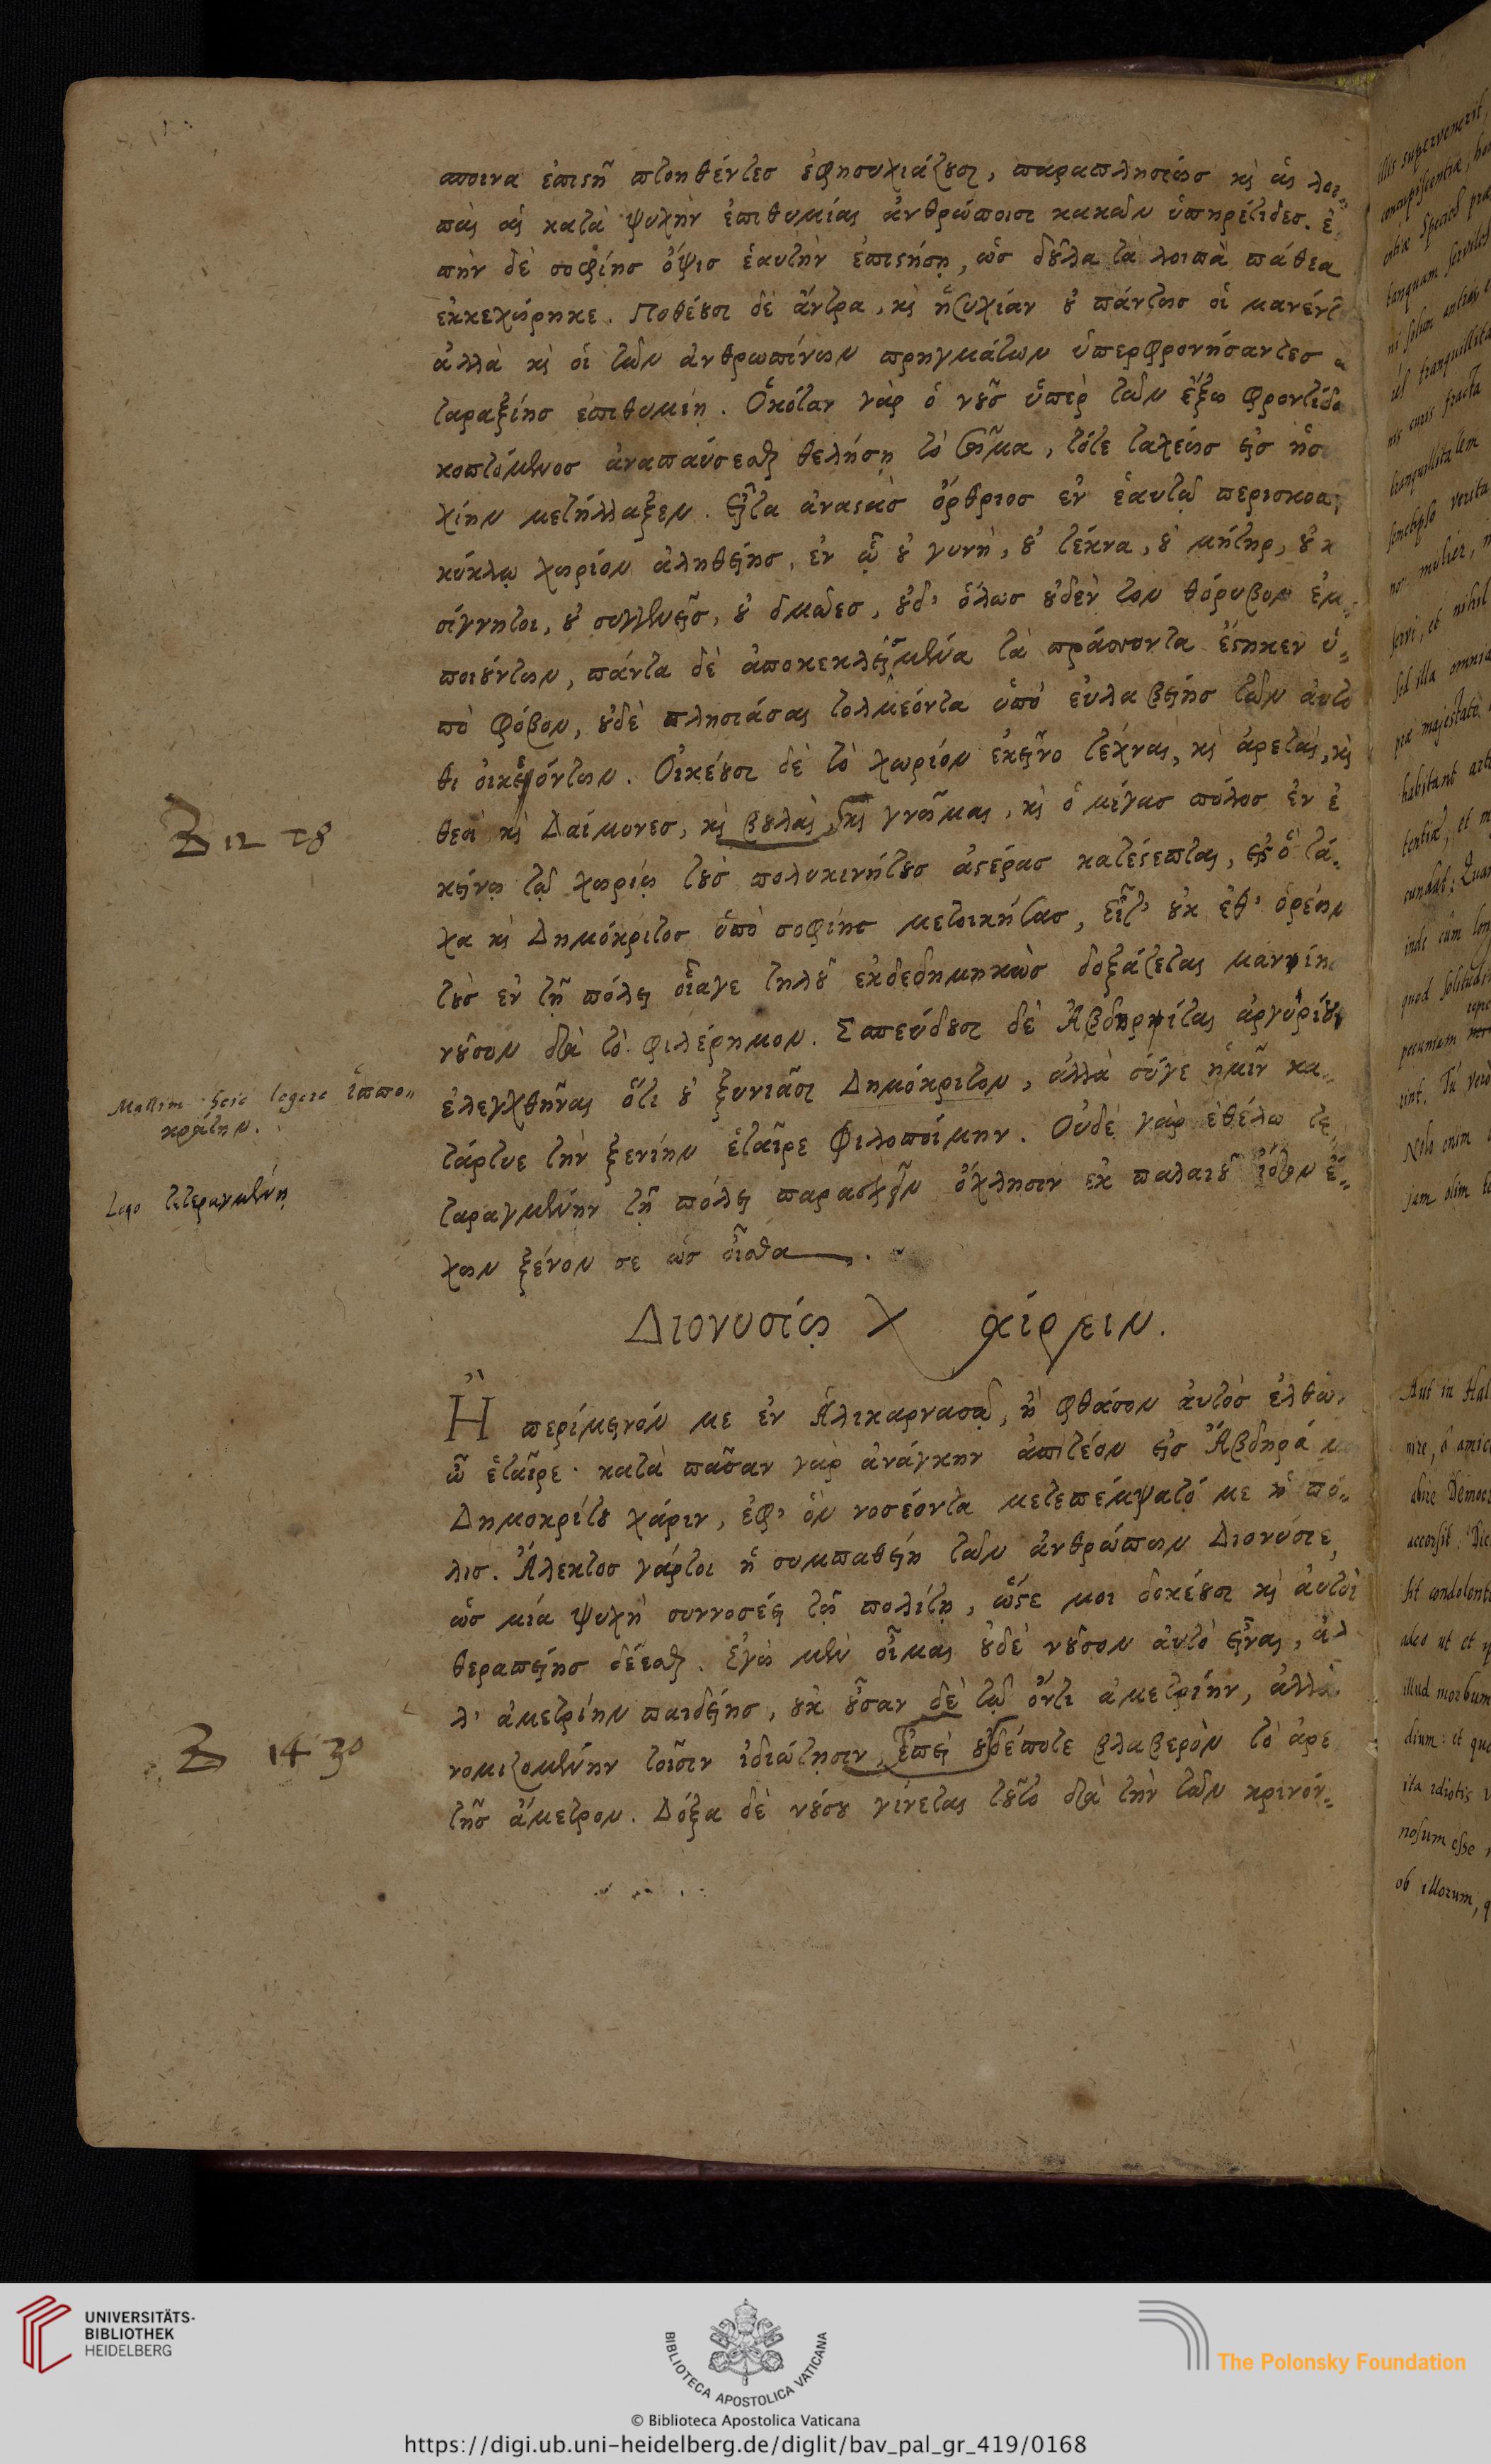 αποινα ἐπιστῇ πτοηθέντες ἐφησυχιάζουσι, παραπλησίως καὶ αἱ λοι-
παὶ αἱ κατὰ ψυχὴν ἐπιθυμίαι ἀνθρώποισι κακῶν ὑπηρέτιδες. ἐ
πὴν δὲ σοφίης ὄψις ἑαυτὴν ἐπιστήσῃ, ὡς δοῦλα τὰ λοιπὰ πάθεα
ἐκκεχώρηκε. Ποθέουσι δὲ ἄντρα, καὶ ἡσυχίαν οὐ πάντως οἱ μανέντ
ἀλλὰ καὶ οἱ τῶν ἀνθρωπίνων πρηγμάτων ὑπερφρονήσαντες ἀ
ταραξίης ἐπιθυμίῃ. Ὁκόταν γὰρ ὁ νοῦς ὑπὲρ τῶν ἔξω φροντίδ
κοπτόμενος ἀναπαύσεσθαι θελήσῃ τὸ σῶμα, τότε ταχέως εἰς ἡσ
χίην μετήλλαξεν. Εἶτα ἀναστὰς ὄρθριος ἐν ἑαυτῷ περισκοπ
κύκλῳ χωρίον ἀληθείης, ἐν ᾧ οὐ γυνὴ, οὐ τέκνα, οὐ μήτηρ, οὐ κ
σίγνητοι, οὐ συγγενεῖς, οὐ δμῶες, οὐδ' ὅλως οὐδὲν τον θόρυβον ἐμ-
ποιούντων, πάντα δὲ ἀποκεκλεισμένα τὰ πράσσοντα ἕστηκεν ὑ-
πὸ φόβου, οὐδὲ πλησιάσαι τολμέοντα ὑπὸ εὐλαβείης τῶν αὐτό
θι οἰκεόντων. Οἰκέουσι δὲ τὸ χωρίον ἐκεῖνο τέχναι, καὶ ἀρεταὶ, καὶ
θεοὶ καὶ Δαίμονες, καὶ βουλαὶ, καὶ γνῶμαι, καὶ ὁ μέγας πόλος ἐν ἐ
κείνῳ τῷ χωρίῳ τοὺς πολυκινήτους ἀστέρας κατέστεπται, εἰς ὃ τά-
χα καὶ Δημόκριτος ὑπὸ σοφίης μετοικήται, εἶτ' οὐκ ἔθ' ὁρέων
τοὺς ἐν τῇ πόλει ἅτε τηλοῦ ἐκδεδημηκὼς δοξάζεται μανίη
νοῦσον διὰ τὸ φιλέρημον. Σπεύδουσι δὲ Ἀβδηρῖται ἀργυρίου
ἐλεγχθῆναι ὅτι οὐ ξυνιᾶσι Δημόκριτον, ἀλλὰ σύγε ἡμῖν κα-
τάρτυε τὴν ξενίην ἑταῖρε Φιλοποίμην. Οὐδὲ γὰρ ἐθέλω τε
ταραγμένην τῇ πόλει παρασχεῖν ὄχλησιν ἐκ παλαιοῦ ἰδίον ἔ-
χων ξένον σε ὡς οἶσθα.
Διονυσίῳ Χαίρειν.
Ἢ περίμεινόν με ἐν Ἁλικαρνασσῷ, ἢ φθάσον αὐτὸς ἐλθὼν
ὦ ἑταῖρε· κατὰ πᾶσαν γὰρ ἀνάγκην ἀπιτέον εἰς Ἄβδηρά μ
Δημοκρίτου χάριν, ἐφ' ὃν νοσέοντα μετεπέμψατό με ἡ πό-
λις. Ἄλεκτος γάρτοι ἡ συμπαθείη τῶν ἀνθρώπων Διονύσιε,
ὡς μία ψυχὴ συννοσέει τῷ πολίτῃ, ὥστε μοι δοκέουσι καὶ αὐτοὶ
θεραπείης δέεσθαι. Ἐγὼ μὲν οἶμαι οὐδὲ νοῦσον αὐτὸ εἶναι, ἀλ
λ' ἀμετρίην παιδείης, οὐκ οὖσαν δὲ τῷ ὄντι ἀμετρίην, ἀλλὰ
νομιζομένην τοῖσιν ἰδιώτῃσιν, Ἐπεὶ οὐδέποτε βλαβερὸν τὸ ἀρε
τῆς ἄμετρον. Δόξα δὲ νούσου γίνεται τοῦτο διὰ τὴν τῶν κρινόν-
Z 12 28
Mallim hic legere ἱππο-
κράτην.
Lego τεταραγμένῃ
Z 14 30
illis supervenerit,
tanquam
tranquillitatem
non mulier,
servi, et nihil
sed illa omnia
præ majestate
habitant
inde cùm
pecuniam
Tu verò
Nolo enim
Jam olim
Aut in Hal
nire, ô amice
abire Democ
accersit.
sit condolent
adeo ut et
illud morbum
dium: et
ita idiotis
nosum esse
ob illorum,
UNIVERSITÄTS-
BIBLIOTHEK
HEIDELBERG
BIBLIOTECA APOSTOLICA VATICANA
The Polonsky Foundation
© Biblioteca Apostolica Vaticana
https://digi.ub.uni-heidelberg.de/diglit/bav_pal_gr_419/0168